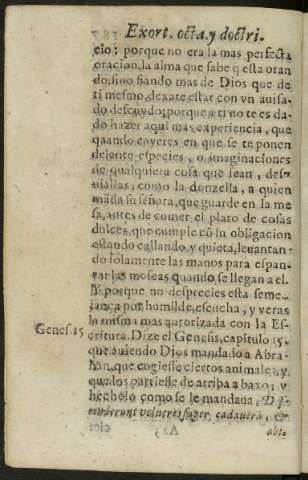 Exort. octa. y doctri-
cio: porque no era la mas perfecta
oracion, la alma que sabe q̃ esta oran
do, sino fiando mas de Dios que de
ti mesmo, dexate estar con vn auisa-
do descuydo; porque a ti no te es da-
do hazer aqui mas experiencia, que
quando vyeres en que se te ponen
delante especies, o imaginaciones
de qualquiera cosa que sean, des-
uiallas: como la donzella, a quien
mãda su señora, que guarde en la me
sa, antes de comer, el plato de cosas
dulces, que cumple cõ su obligacion
estando callando, y quieta, leuantan-
do solamente las manos para espan-
tar las moscas quando se llegan a el.
Y porque no desprecies esta seme-
jança por humilde, escucha, y veras
la misma mas autorizada con la Es-
Genes. 15
critura. Dize el Genesis, capitulo 15.
que auiendo Dios mandado a Abra-
han, que cogiesse ciertos animales, y
que los partiesse de arriba a baxo; y
hecholo como se le mandaua, Des-
cenderunt volucres super cadauera, &
abi-